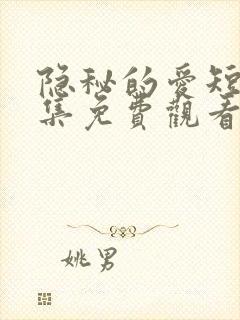 隐秘的爱短
集免費觀看
姚男